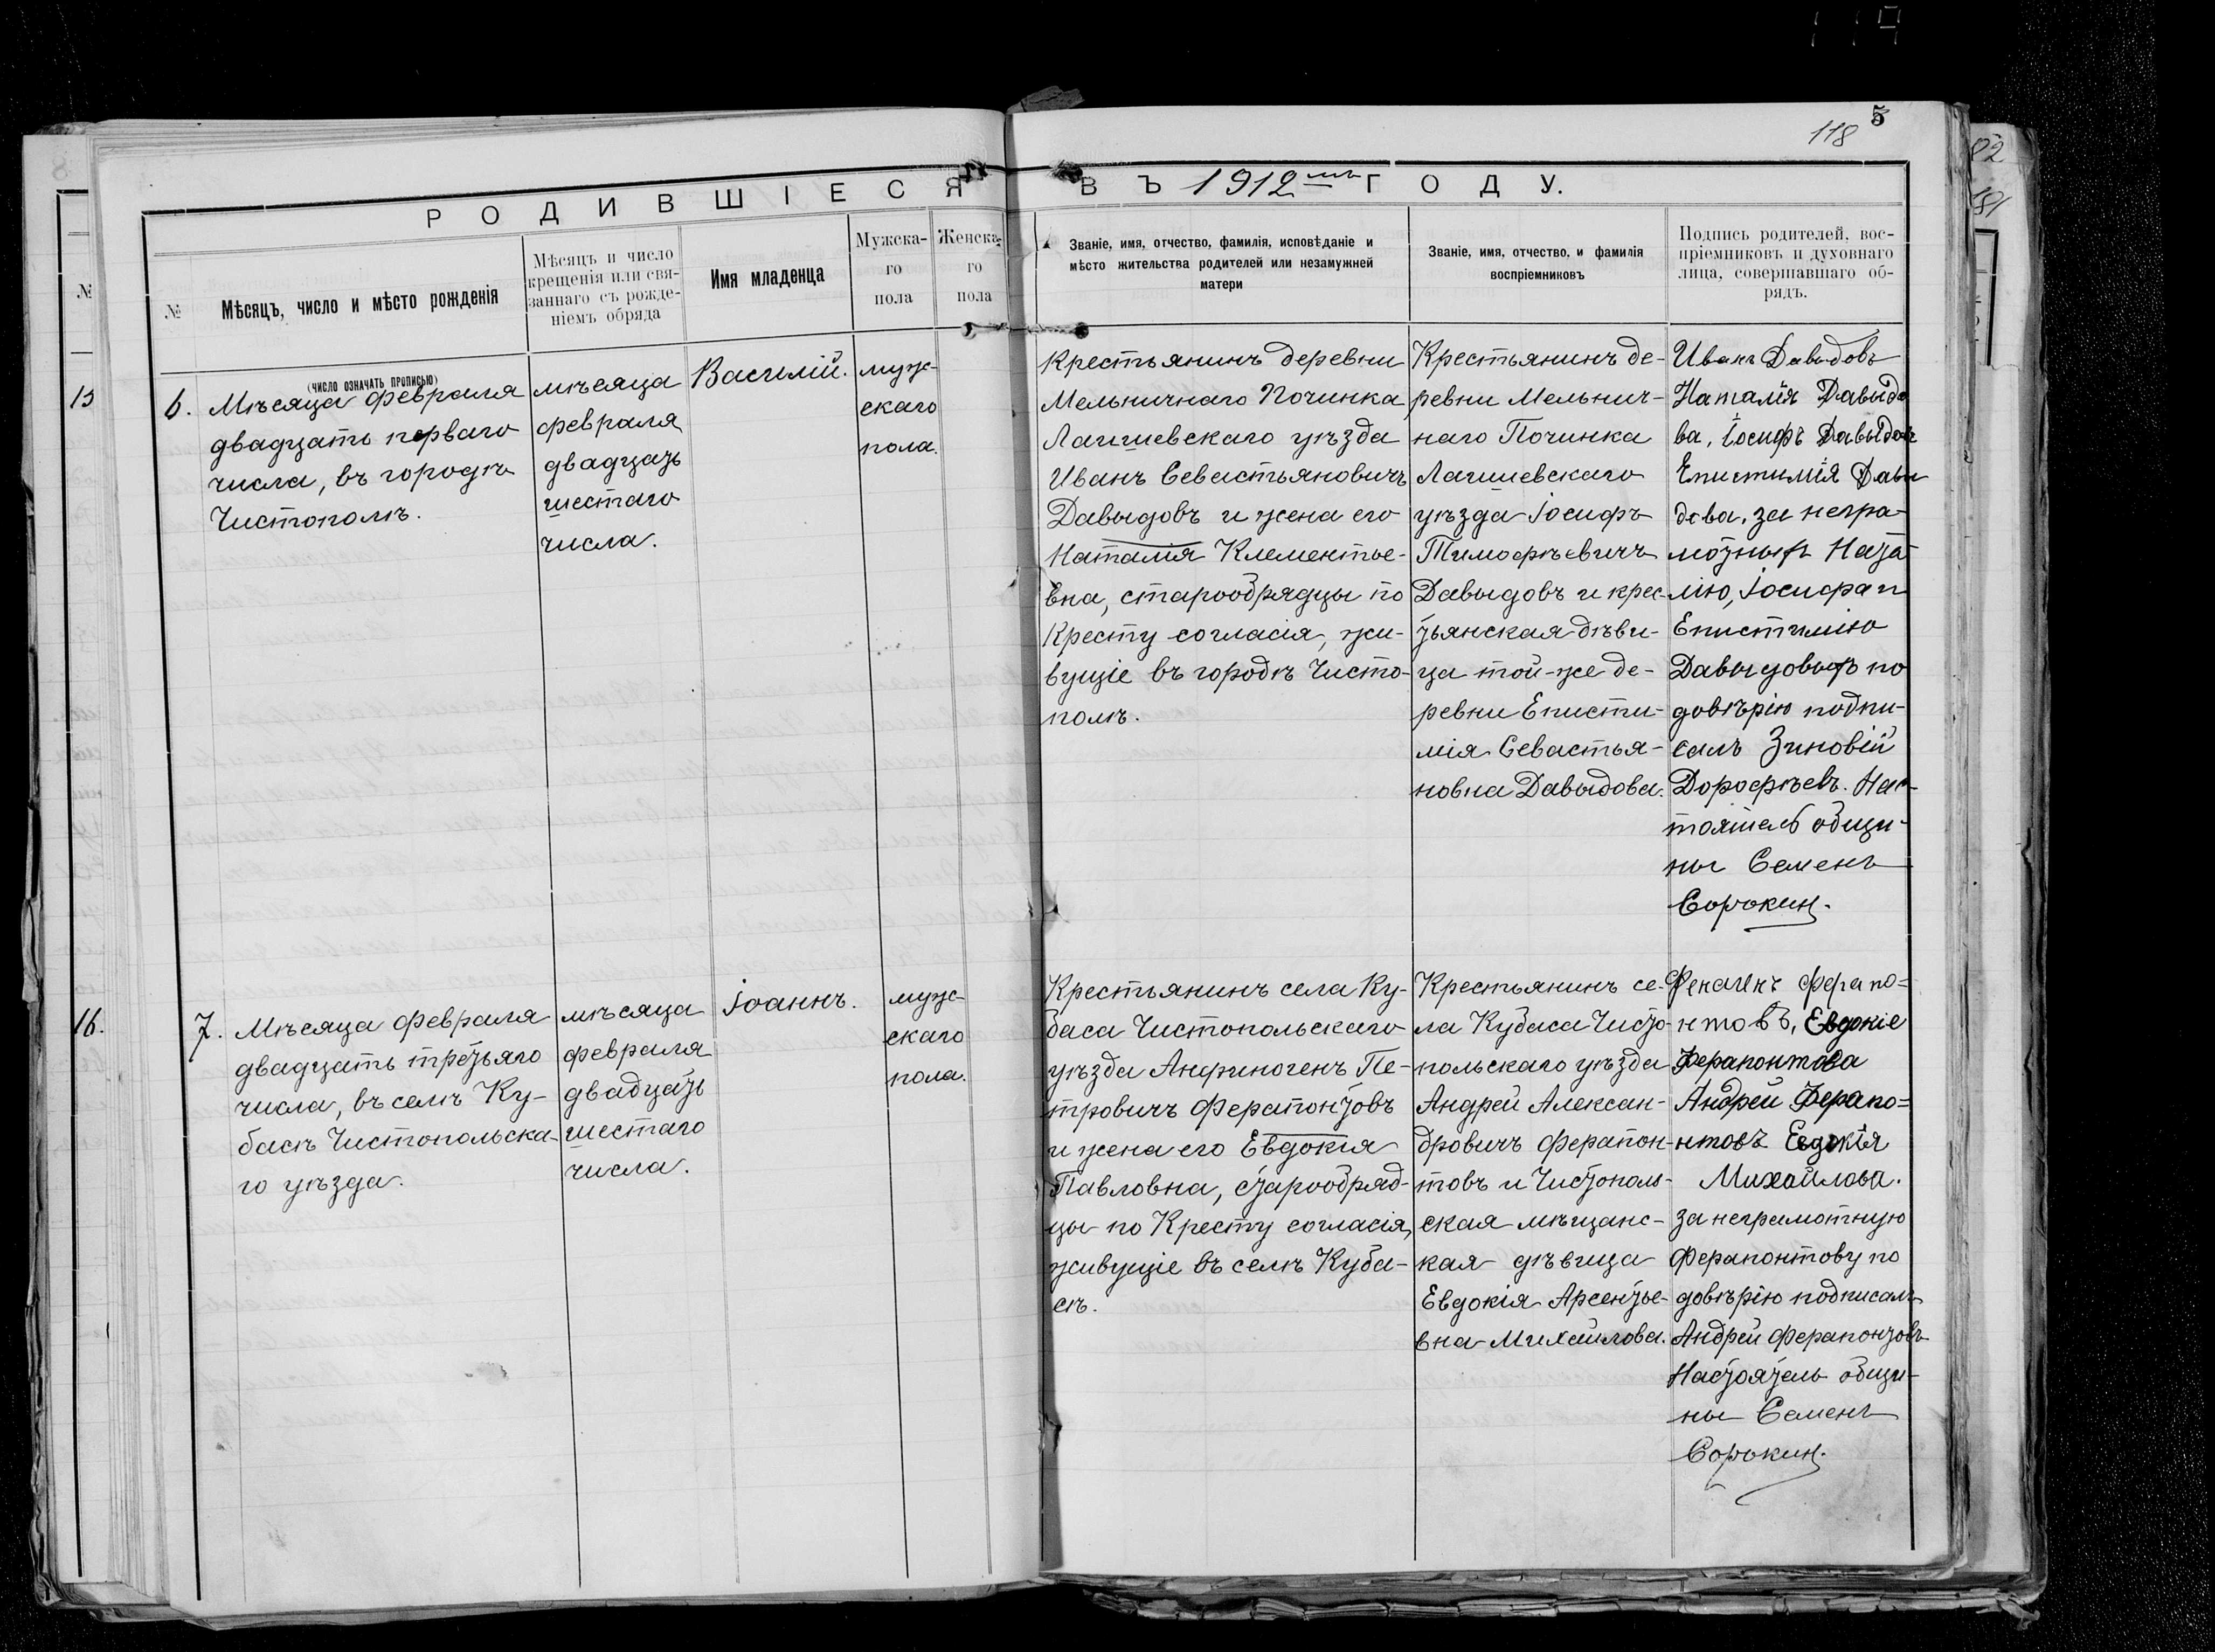 118 5
РОДИВШІЕСЯ ВЪ 1912мъ ГОДУ.
№
Мѣсяцъ, число и мѣсто рожденія
(число означать прописью)
Мѣсяцъ и число
крещенія или свя-
заннаго съ рожде-
ніемъ обряда
Имя младенца
Мужска-
го
пола
Женска-
го
пола
Званіе, имя, отчество, фамилія, исповѣданіе и
мѣсто жительства родителей или незамужней
матери
Званіе, имя, отчество, и фамилія
воспріемниковъ
Подпись родителей, вос-
пріемниковъ и духовнаго
лица, совершавшаго об-
рядъ.
6.
Мѣсяца февраля
двадцать перваго
числа, въ городѣ
Чистополѣ.
мѣсяца
февраля
двадцать
шестаго
числа.
Василій.
муж-
скаго
пола.
Крестьянинъ деревни
Мельничнаго Починка
Лаишевскаго уѣзда
Иванъ Севастьяновичъ
Давыдовъ и жена его
Наталія Клементье-
вна, старообрядцы по
Кресту согласія, жи-
вущіе въ городѣ Чисто-
полѣ.
Крестьянинъ де-
ревни Мельнич-
наго Починка
Лаишевскаго
уѣзда Іосифъ
Тимофѣевичъ
Давыдовъ и крес-
тьянская дѣви-
ца той-же де-
ревни Еписти-
мія Севастья-
новна Давыдова.
Иванъ Давыдовъ
Наталія Давыдо
ва, Іосифъ Давыдовъ
Епистимія Давы
дова, за негра-
мотныхъ Ната-
лію, Іосифа и
Епистимію
Давыдовыхъ по
довѣрію подпи-
салъ Зиновій
Дорофѣевъ. Нас-
тоятель общи-
ны Семенъ
Сорокин.
7.
Мѣсяца февраля
двадцать третьяго
числа, въ селѣ Ку-
басѣ Чистопольска-
го уѣзда.
мѣсяца
февраля
двадцать
шестаго
числа.
Іоаннъ.
муж-
скаго
пола.
Крестьянинъ села Ку-
баса Чистопольскаго
уѣзда Анфиногенъ Пе-
тровичъ Ферапонтовъ
и жена его Евдокія
Павловна, старообряд-
цы по Кресту согласія,
живущіе въ селѣ Куба-
сѣ.
Крестьянинъ се-
ла Кубаса Чисто-
польскаго уѣзда
Андрей Алексан-
дровичъ Ферапон-
товъ и Чистополь-
ская мѣщанс-
кая дѣвица
Евдокія Арсентье-
вна Михайлова.
Ферапо=
нтовъ, Евдокіе
Ферапонтова
Андрей Ферапо=
нтовъ Евдокія
Михайлова.
За неграмотную
Ферапонтову по
довѣрію подписалъ
Андрей Ферапонтовъ
Настоятель общи-
ны Семенъ
Сорокин.
№
15
16.